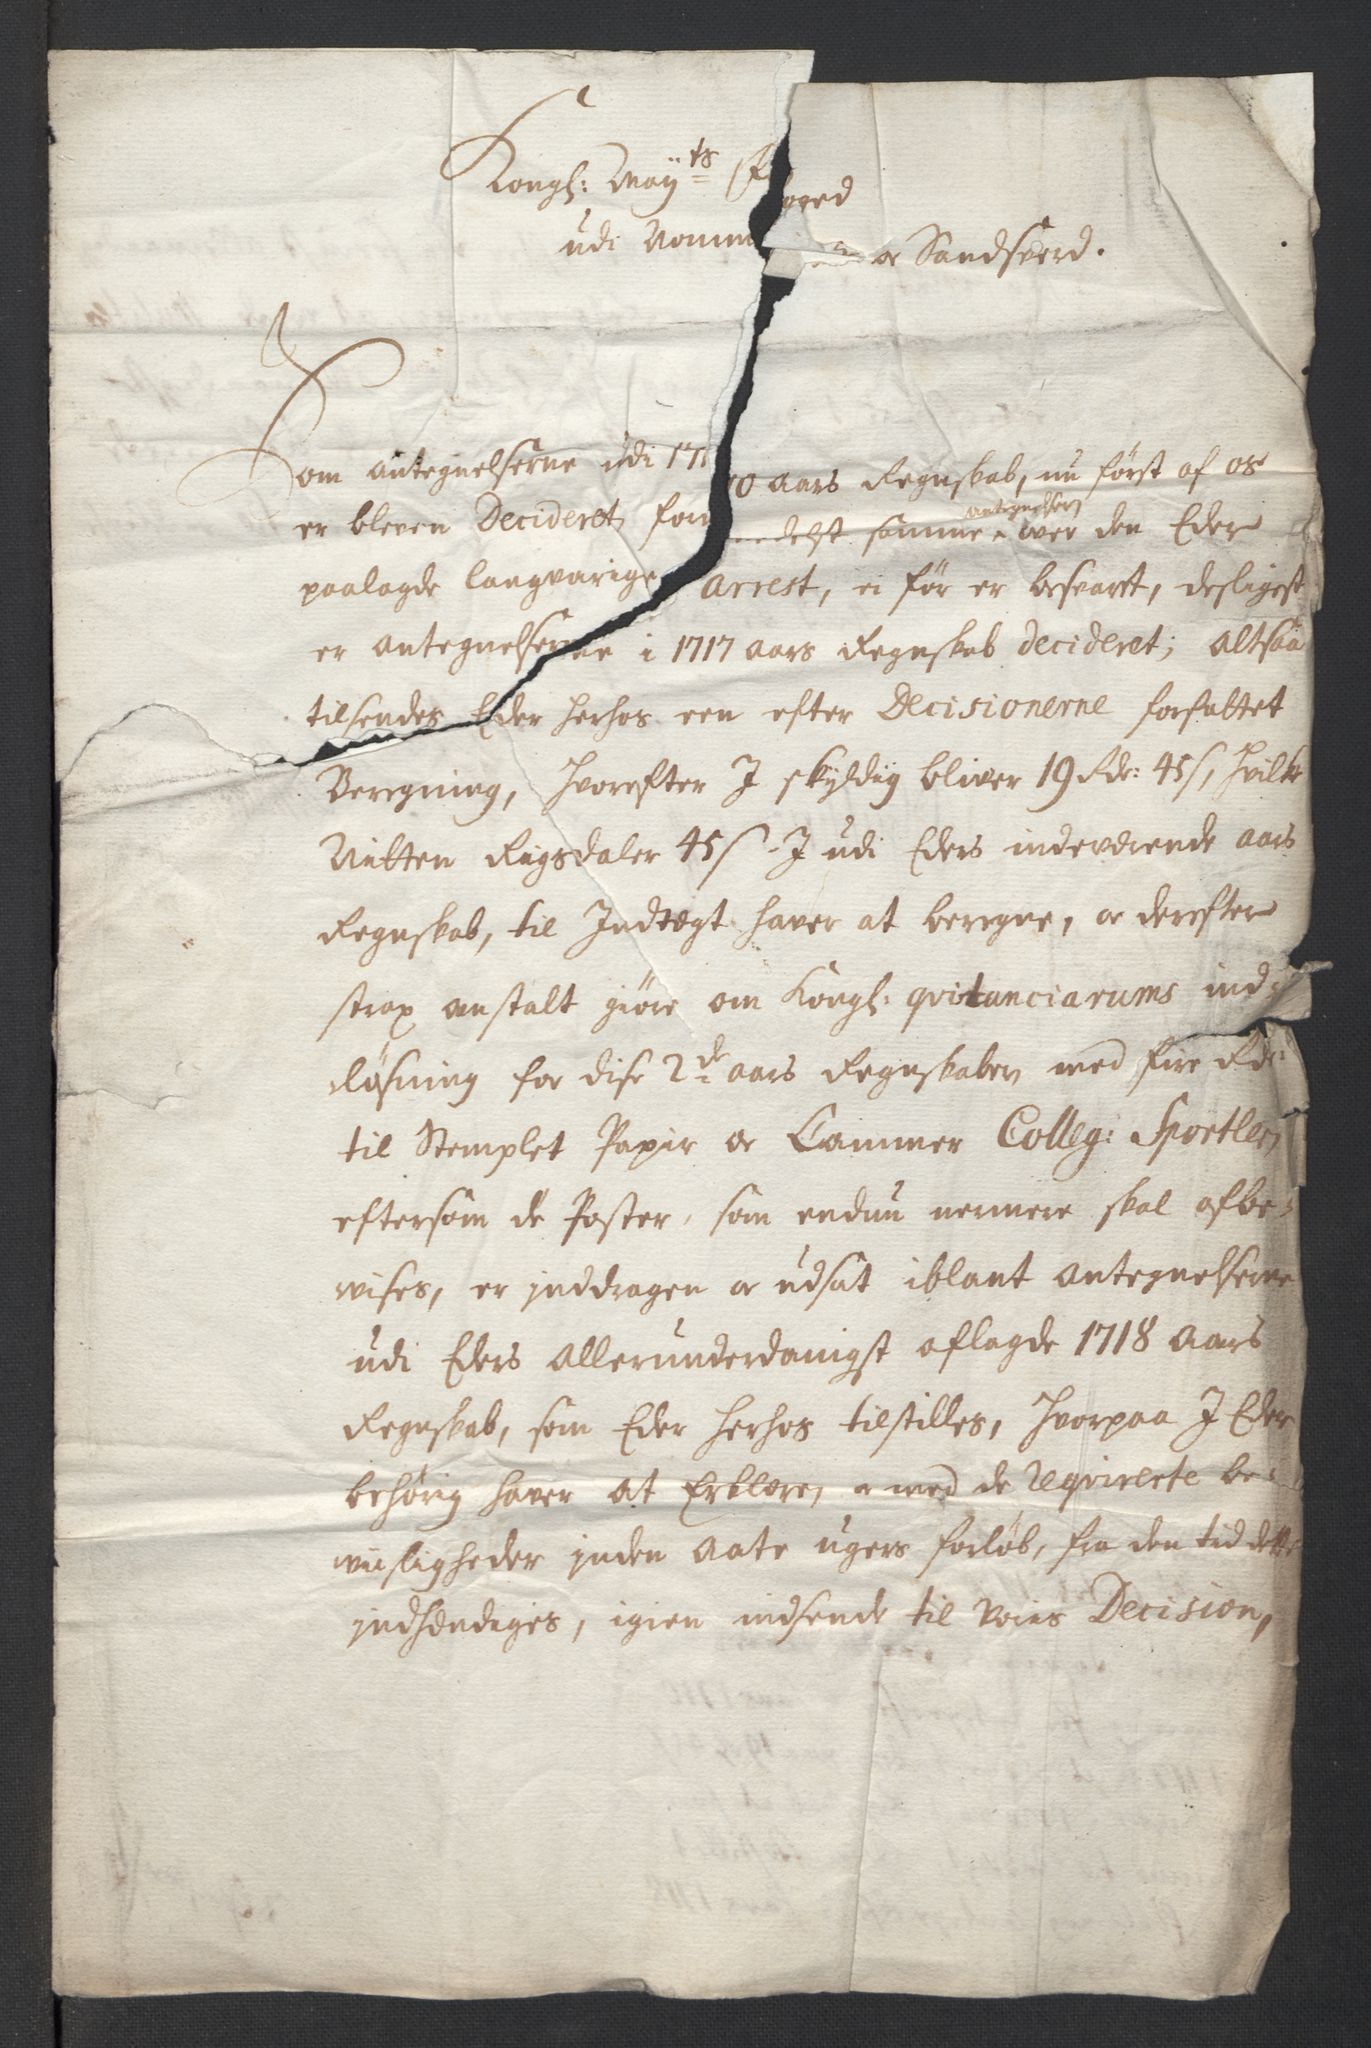 Kongl: May:ts F oged
udi Numm e Sandsverd.
Som antegnelserne udi 171 0 aars Regnskab, nu først af os
er bleven Decideret, form edelst samme antegnelser over den Eder
paalagde langvarige Arrest, ei før er besvaret, desligest
er antegnelserne i 1717 aars Regnskab decideret; altsaa
tilsendes Eder herhos een efter Decisionerne forfattet
Beregning, hvorefter I skyldig bliver 19 Rdr: 45 s, hvilke
Nitten Rigsdaler 45 s I udi Eders indeværende aars
Regnskab, til Indtægt haver at beregne, oc derefter
strax anstalt giøre om Kongl: qvitanciarums ind-
løsning for dise 2de aars Regnskaber med fire Rdr:
til Stemplet Papir oc Cammer Colleg: Sportler,
eftersom de Poster, som endnu nermere skal afbe-
vises, er inddragen oc udsat iblant antegnelserne
udi Eders allerunderdanigst aflagde 1718 aars
Regnskab, som Eder herhos tilstilles, hvorpaa I Eder
behørig haver at Erklære, oc med de reqvirerte be-
viisligheder inden aate ugers forløb, fra den tid dette
indhændiges, igien indsende til voris Decision,